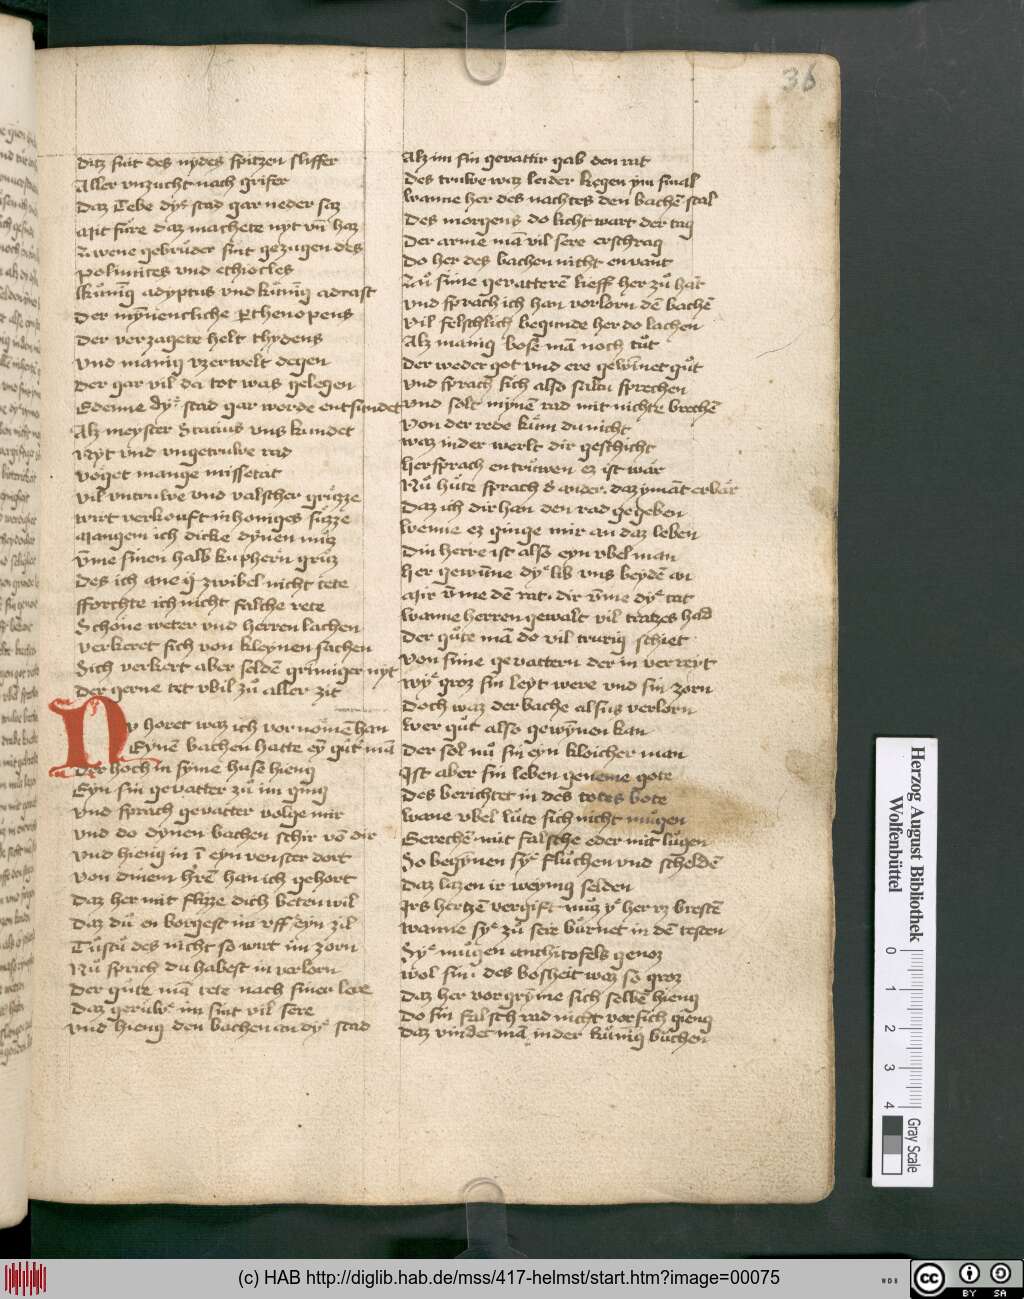 36
Ditz sint des nydes spitzen sliffer
Aller vnzucht nach grifer
Daz Tebe dyͤ stad gar neder saz
Mit fure daz machete nyt vn̄ haz
Zwene gebruͦder sint gezugen des
Polinices vnd ethiocles
Kuͦnīg adyptus vnd kuͦnīg adrast
Der mȳnencliche Parthenopeus
Der vorzagete helt thydeus
Vnd manig vzerwelt degen
Der gar vil da tot was gelegen
E denne dyͤ stad gar worde entsundet
Alz meyster Stacius vns kundet
Nyt vnd vngetruwe rad
Vͦget mange missetat
Vil vntruwe vnd valscher gruͦzze
Wirt verkouft in honiges suͦzze
Mangem ich dicke dynen muͦz
Vm̄e sinen halb kuphern gruͦz
Des ich ane zwibel nicht tete
fforchte ich nicht falche rete
Schone weter vnd herren lachen
Verkeret sich von kleynen sachen
Sich verkert aber selden grimiger nyt
Der gerne tet vbil zuͦ aller zit
Ny horet waz ich vornomē han
Eynē bachen hatte ey guͦt mā
Der hoch in syme huse hieng
Eyn sin gevatter zu im ging
Vnd sprach gevatter volge mir
Vnd do dynen bachen schir vō dir
Vnd hieng in ī eyn venster dort
Von diniem hrē han ich gehort
Daz her mit flizze dich beten wil
Daz duͦ en borgest im vff eyn zil
Tuͦstuͦ des nicht so wirt im zorn
Nuͦ sprich du habest in verlorn
Der guͦte mā tete nach siner lere
Daz geruͦwͤ im sint vil sere
Vnd hieng den bachen an dyͤ stad
Alz im sin gevattir gab den rat
Des truwe waz leider kegen ym smal
Wanne her des nachtes den bachē stal
Des morgens do licht wart der tag
Der arme mā vil sere erschrag
Do her des bachen nicht envant
Zuͦ sime gevatterē lieff her zuͦ hāt
Vnd sprach ich han vorlorn dē bachē
Vil felschlich begunde her do lachen
Alz manig bose mā noch tuͦt
Der weder got vnd ere gewīnet guͦt
Vnd sprach sich also saltu sprechen
Vnd solt mynē rad mit nichte brechē
Von der rede kuͦm du nicht
Waz in der werlt dir geschicht
Her sprach entruͦwen ez ist war
Nuͦ huͦte sprach d̄ ander. daz ymāt erbar
Daz ich dir han den rad gegeben
Wenne ez ginge mir an daz leben
Din herre ist also eyn vbel man
Her gewūne dyͤ lib vns beydē an
Mir vm̄e dē rat. dir vm̄e dyͤ tat
Wanne herren gewalt vil tratzes had
Der guͦte mā do vil trurig schiet
Von sime gevattern der in verreyt
Wyͤ groz sin leyt were vnd sin zorn
Doch waz der bache alsus verlorn
Wer guͦt also gewȳnen kan
Der sol nuͦ sin eyn kloicher man
Ist aber sin leben geneme gote
Des berichtet in des totes bote
Wane vbel luͦte sich nicht muͦgen
Gerechē mit falsche oder mit luͦgen
So begȳnen syͤ fluͦchen vnd scheldē
Daz lazen ir weynig selden
Irs hertzē vergift muͦz yͤ her vz brestē
Wanne syͤ zuͦ sere buͦrnet in dē testen
Syͤ muͦgen anthitofels genoz
Wol sin. des bosheit waz so groz
Daz her vor grȳme sich selbē hieng
Do sin falsch rad nicht vor sich gieng
Daz vindet mā in der kuͦnīg buͦchen
Herzog August Bibliothek
Wolfenbüttel
0 1 2 3 4
Gray Scale
(c) HAB http://diglib.hab.de/mss/417-helmst/start.htm?image=00075
WDB
cc BY SA